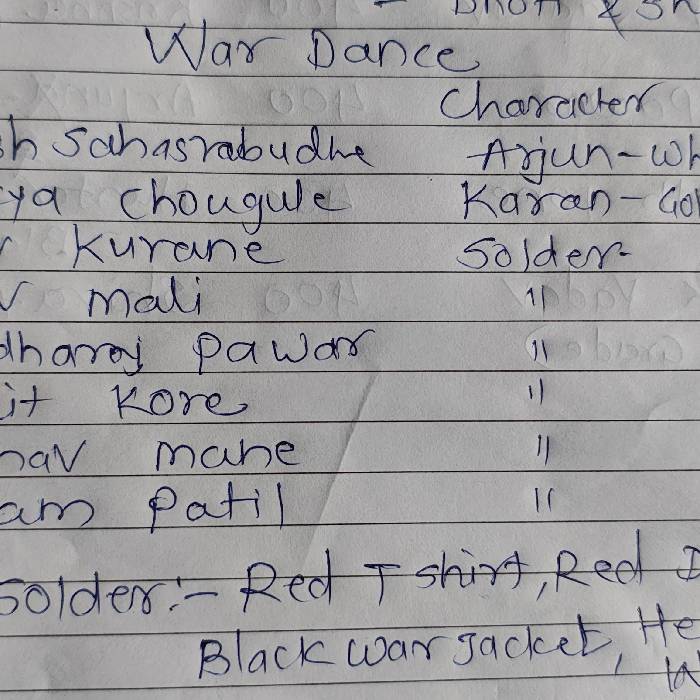 War Dance
Character
h Sahasrabudhe Arjun-Wh
ya Chougule Karan-Gol
Kurane Solder-
v mali 11
dharaj Pawar 11
it Kore 11
nav mane 11
am Patil 11
Solder:- Red T shirt, Red D
Black war Jacket, He